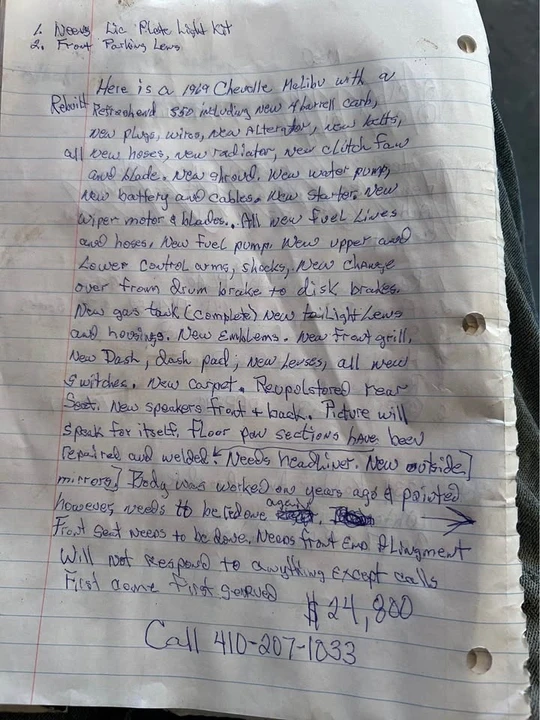 1. Needs Lic Plate Light Kit
2. Front Parking Lens
Here is a 1969 Chevelle Malibu with a
Rebuilt Refreshend 350 including new 4 barrell carb,
new plugs, wires, new Alternator, new belts,
all new hoses, new radiator, new clutch fan
and blade. New shroud. New water pump,
New battery and cables. New starter. New
wiper motor & blades. All new fuel Lines
and hoses. New fuel pump. New upper and
Lower control arms, shocks, New change
over from drum brake to disk brakes.
New gas tank (complete) New tailLight Lens
and housings. New Emblems. New front grill,
New Dash, dash pad, new Lenses, all new
switches. New carpet. Reupolstored rear
Seat. New speakers front & back. Picture will
speak for itself. floor pan sections have been
repaired and welded. Needs headliner. New outside]
mirrors] Body was worked on years ago & painted
however needs to be done again
Front Seat needs to be done. Needs front End Alingment
Will not respond to anything Except calls
First come First served
$24,800
Call 410-207-1033